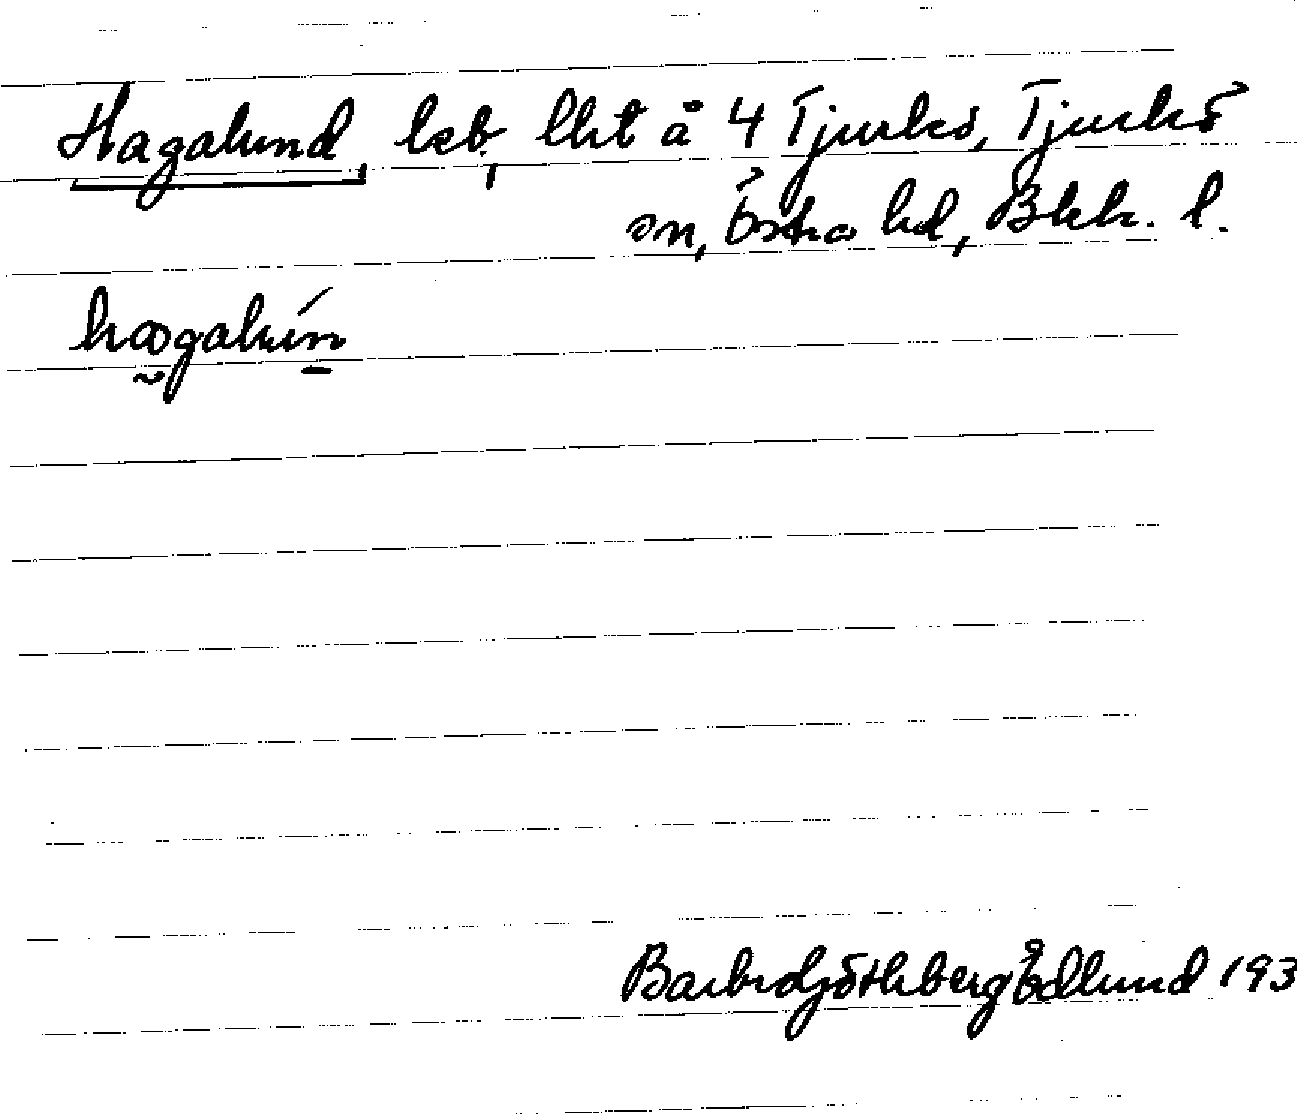 Hagalund, lsb, lht å 4 Tjurkö, Tjurkö
sn, Östra hd, Blek. l.
hagalún
Barbro Göthberg Edlund 193